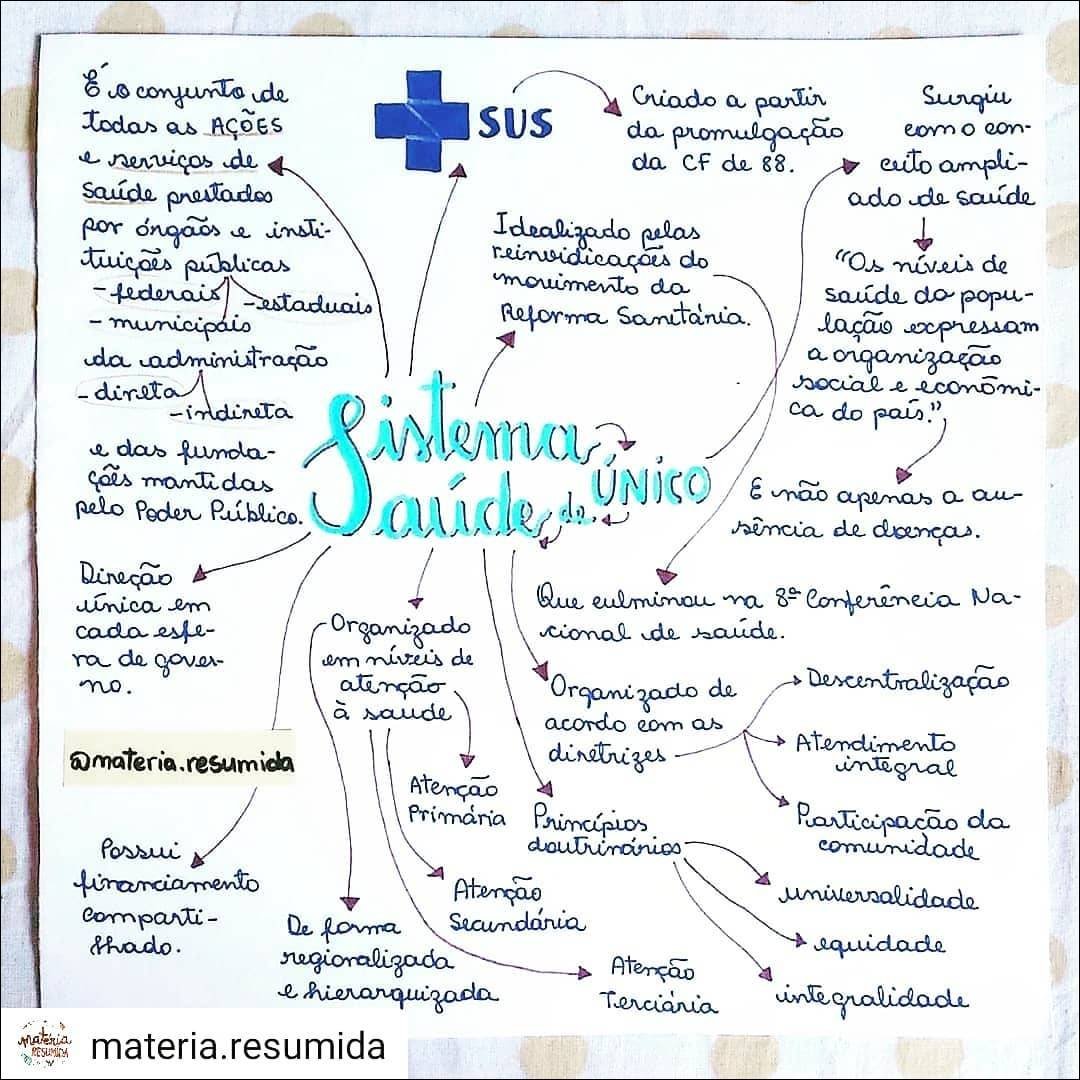 É o conjunto de
todas as AÇÕES
e serviços de
saúde prestados
por órgãos e insti-
tuições públicas
- federais
- estaduais
- municipais
da administração
- direta
- indireta
e das funda-
ções mantidas
pelo Poder Público.
SUS
Criado a partir
da promulgação
da CF de 88.
Surgiu
com o con-
ceito ampli-
ado de saúde
"Os níveis de
saúde da popu-
lação expressam
a organização
social e econômi-
ca do país."
E não apenas a au-
sência de doenças.
Idealizado pelas
reinvidicações do
movimento da
Reforma Sanitária.
Que culminou na 8ª Conferência Na-
cional de saúde.
Sistema
ÚNICO
de
Saúde
Direção
única em
cada esfe-
ra de gover-
no.
@materia.resumida
Possui
financiamento
comparti-
lhado.
Organizado
em níveis de
atenção
à saude
Atenção
Primária
Atenção
Secundária
Atenção
Terciária
De forma
regionalizada
e hierarquizada
Organizado de
acordo com as
diretrizes
Descentralização
Atendimento
integral
Participação da
comunidade
Princípios
doutrinários
universalidade
equidade
integralidade
matéria
RESUMIDA
materia.resumida